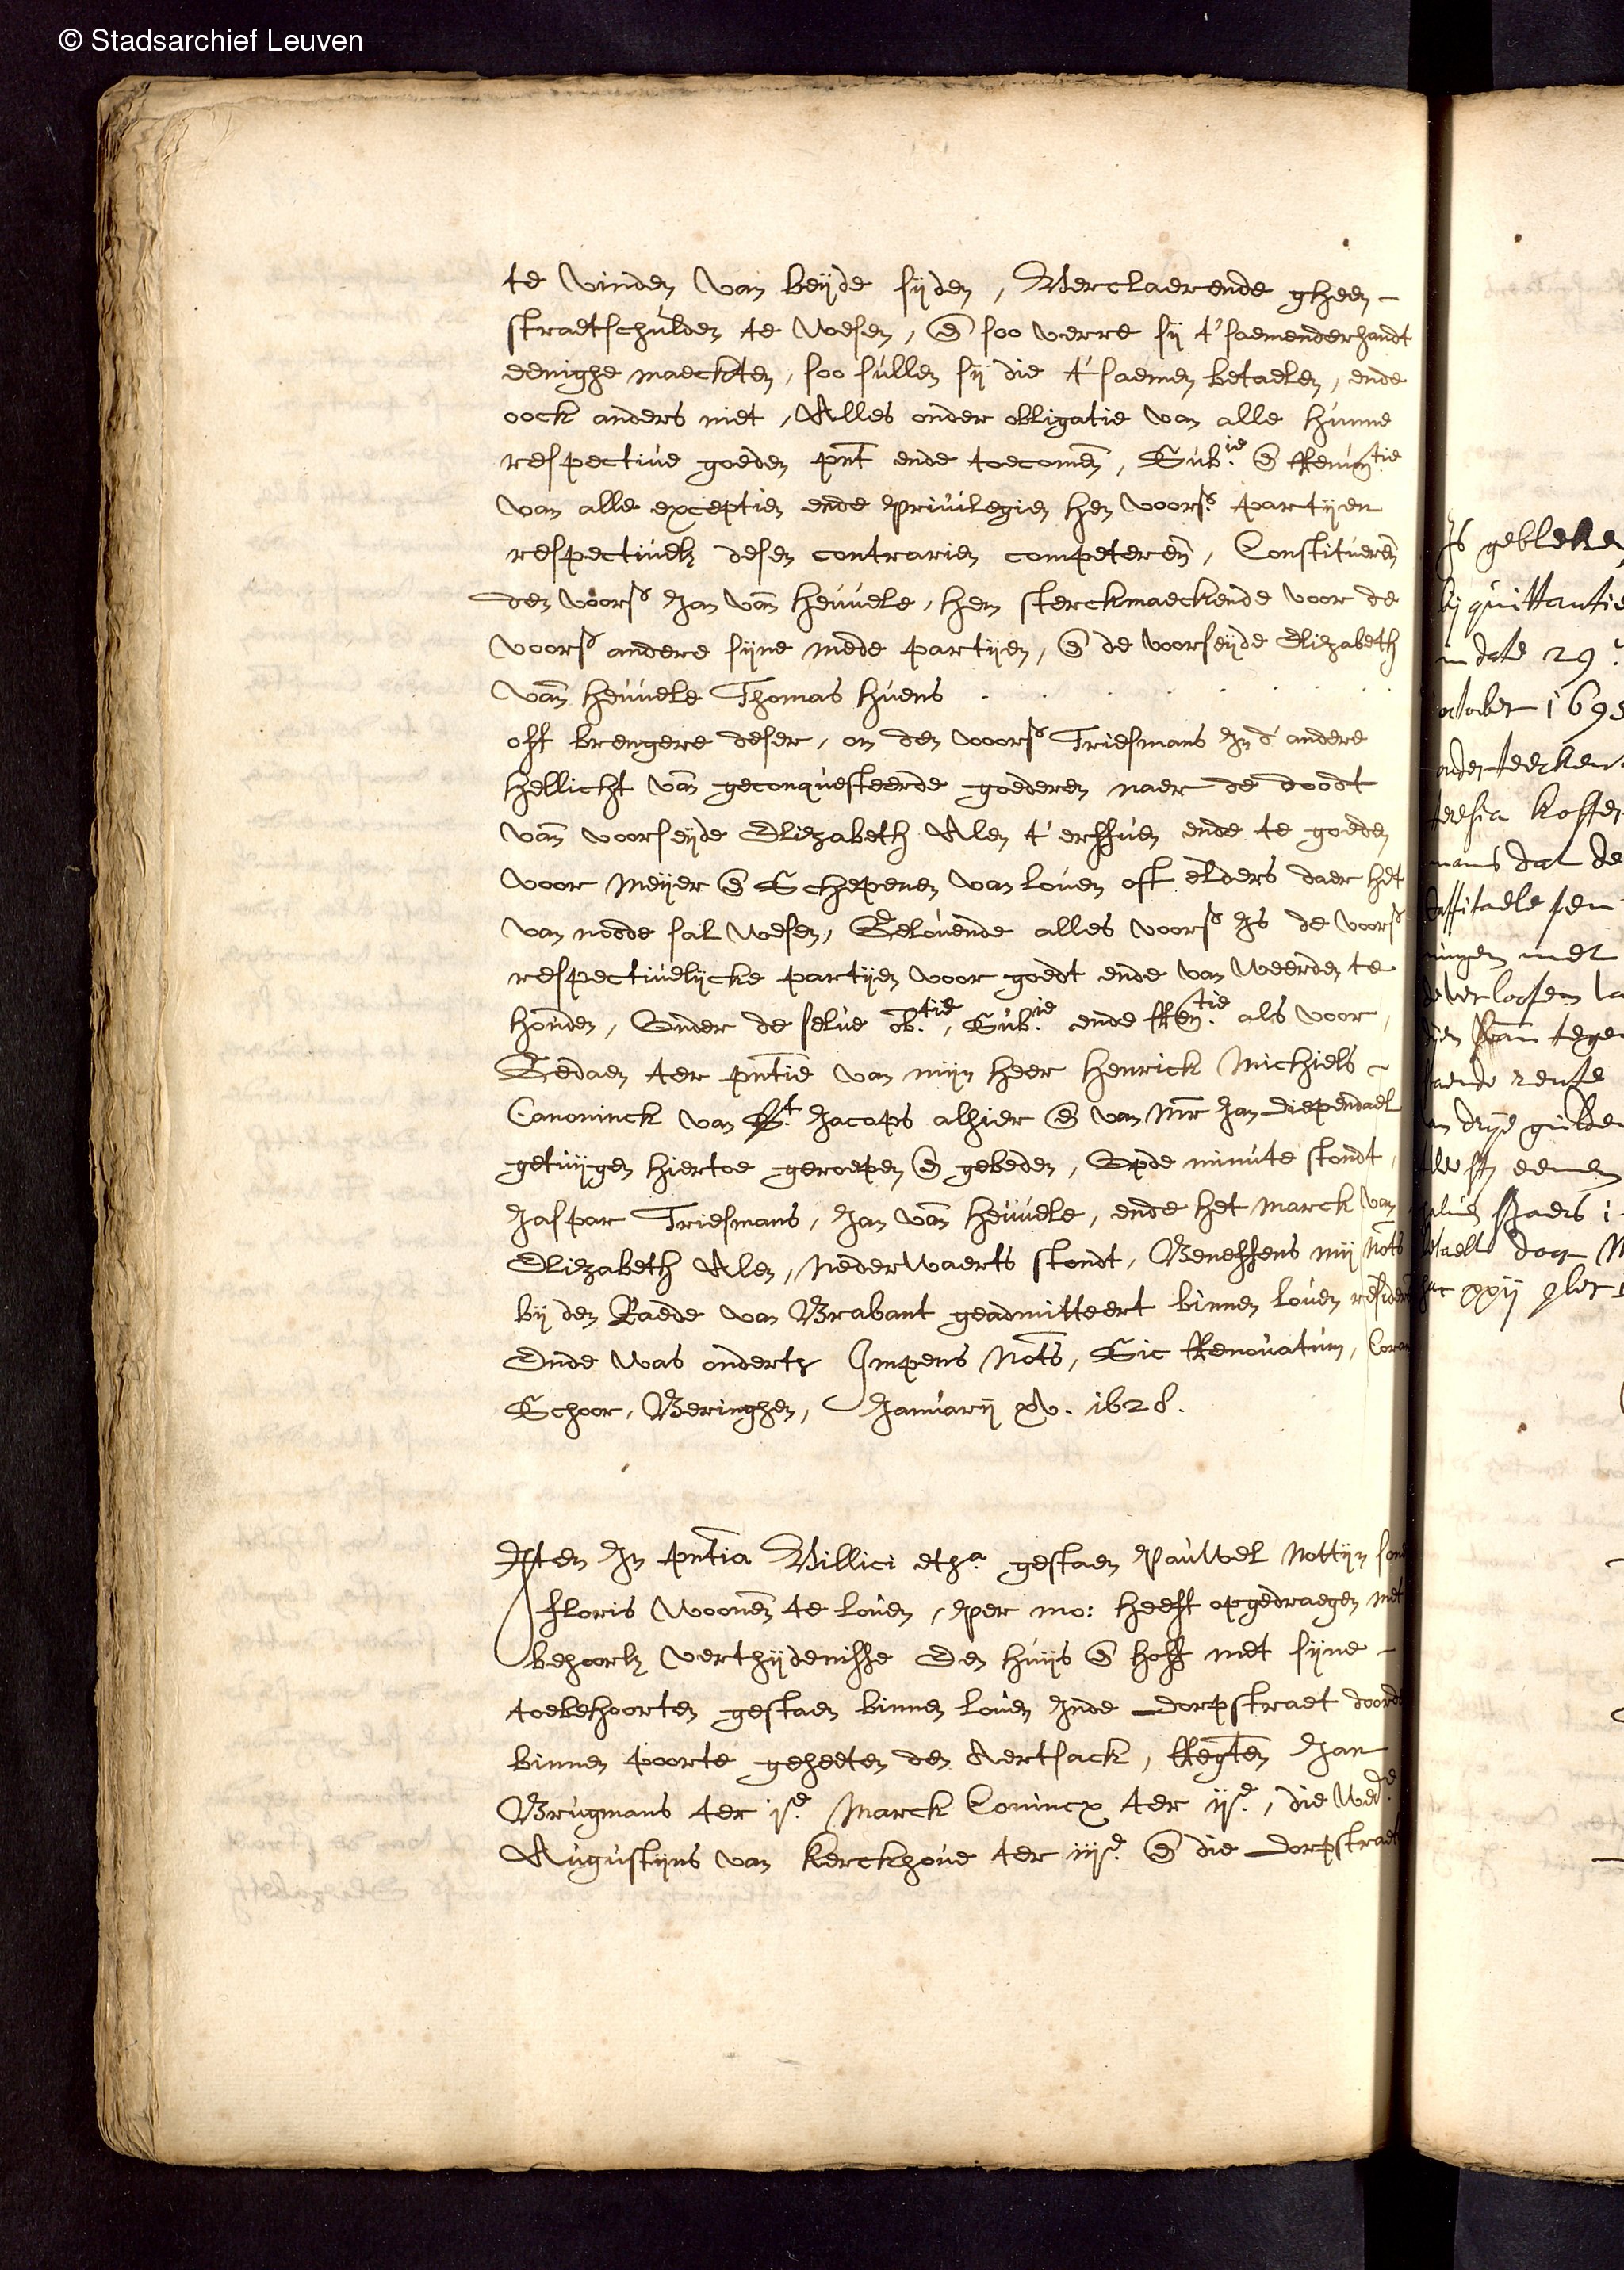 © Stadsarchief Leuven
te vinden van beijde sijden, Verclaerende gheen -
straetschulden te wesen, en̄ soo verre sij t'saemenderhandt
eenighe maeckten, soo sullen sij die t'saemen betaelen, ende
oock anders niet, Alles onder obligatie van alle hunne
respective goeden pn̄t ende toecomen̄, Sub.ie en̄ Renun̄tie
van alle exceptien ende privilegien hen voors. partijen
respectivel. desen contrarien competeren̄, Constitueren̄
den voors. Jan van̄ heuvele, hem sterckmaeckende voor de
voors. andere sijne mede partijen, en̄ de voorseijde Elizabeth
van̄ heuvele Thomas huens
oft brengere deser, om den voors. Triesmans In d'andere
hellicht van̄ geconquesteerde goederen naer de doodt
van̄ voorseijde Elizabeth Alen t'erffven ende te goeden
voor Meijer en̄ Schepenen van loven oft elders daer het
van noode sal wesen, Gelovende alles voors. Is de voors.
respectivelijcke partijen voor goedt ende van weerden te
houden, Onder de selve ob.tie, Sub.ie ende Ren.tie als voor,
Gedaen ter pn̄tie van mijn heer Henrick Michiels -
Canoninck van St. Jacops alhier en̄ van Mr Jan Diependael
getuijgen hiertoe geroepen en̄ gebeden, Opde minute stondt,
Jaspar Triesmans, Jan van̄ heuvele, ende het marck van
Elizabeth Alen, nederwaerts stondt, Beneffens mij Not̄s
bij den Raede van Brabant geadmitteert binnen loven residen̄
Ende was ondert. Impens Not̄s, Sic Renovatum, Coram
Schoor, Beringhen, Januarij xv. 1628.
Item In pn̄tia Villici etc.a gestaen Pauwel Nottijn sone
floris woonen̄ te loven, per mo: heeft opgedraegen met
behoorl. verthijdenisse Een huijs en̄ hoff met sijne -
toebehoorten gestaen binnen loven Inde Dorpstraet
binnen poorte geheeten den Aertsack, Regten̄ Jan
Brugmans ter js.e Marck Conincx ter ijs.e, die Wed.e
Augustijns van Kerckhove ter iijs.e en̄ die Dorpstraet
Is gebleken
bij quittantie
in date 29
october 169
onderteecken
teresia
mans dat de
met
tegen
rente
gulden
eenen